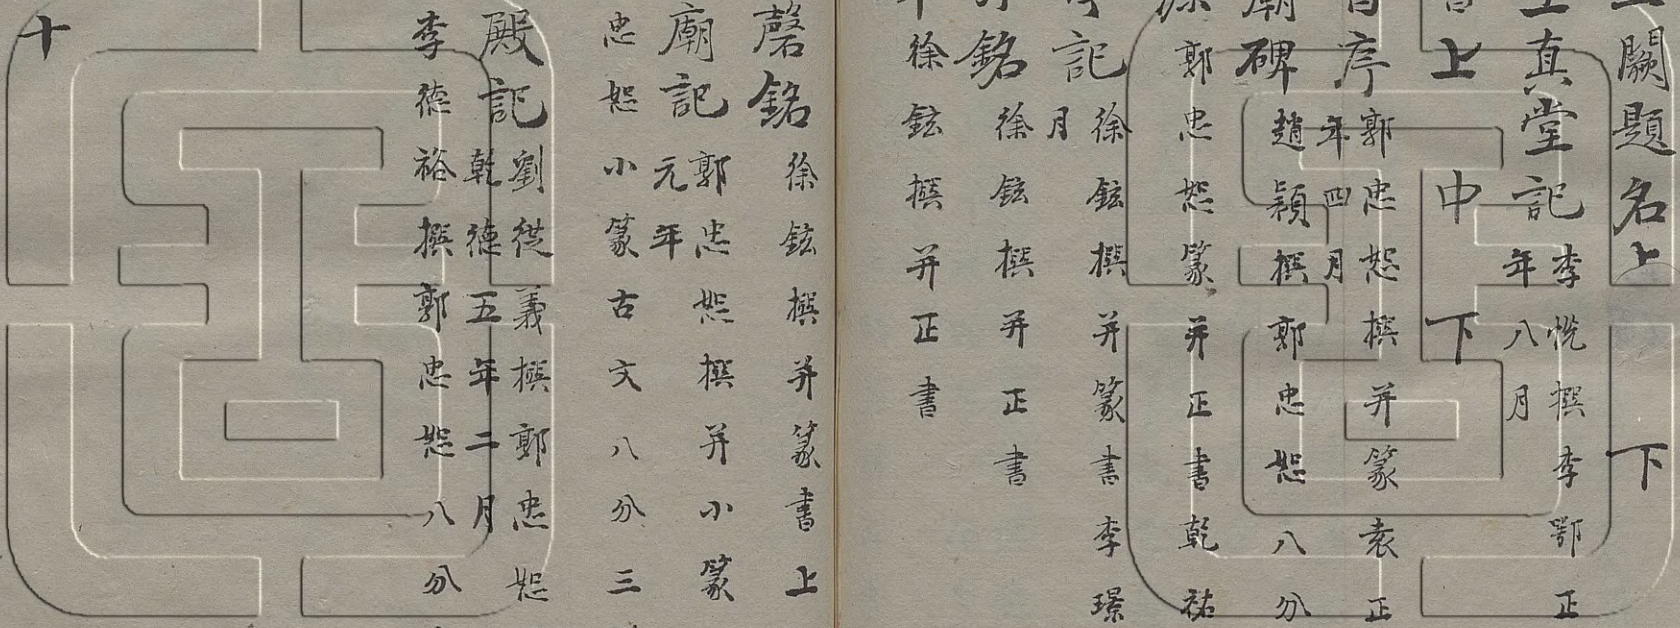 闕題名上 下
真堂記 李悦撰李鄂正
年八月
上 中 下
序 郭忠恕撰并篆袁正
年四月
廟碑 趙穎撰郭忠恕八分
郭忠恕篆并正書乾祐
記 徐鉉撰并篆書李璟
月
銘 徐鉉撰并正書
徐鉉撰并正書
磬銘 徐鉉撰并篆書上
廟記 郭忠恕撰并小篆
元年
忠恕小篆古文八分三
殿記 劉從義撰郭忠恕
乾德五年二月
李德裕撰郭忠恕八分
十